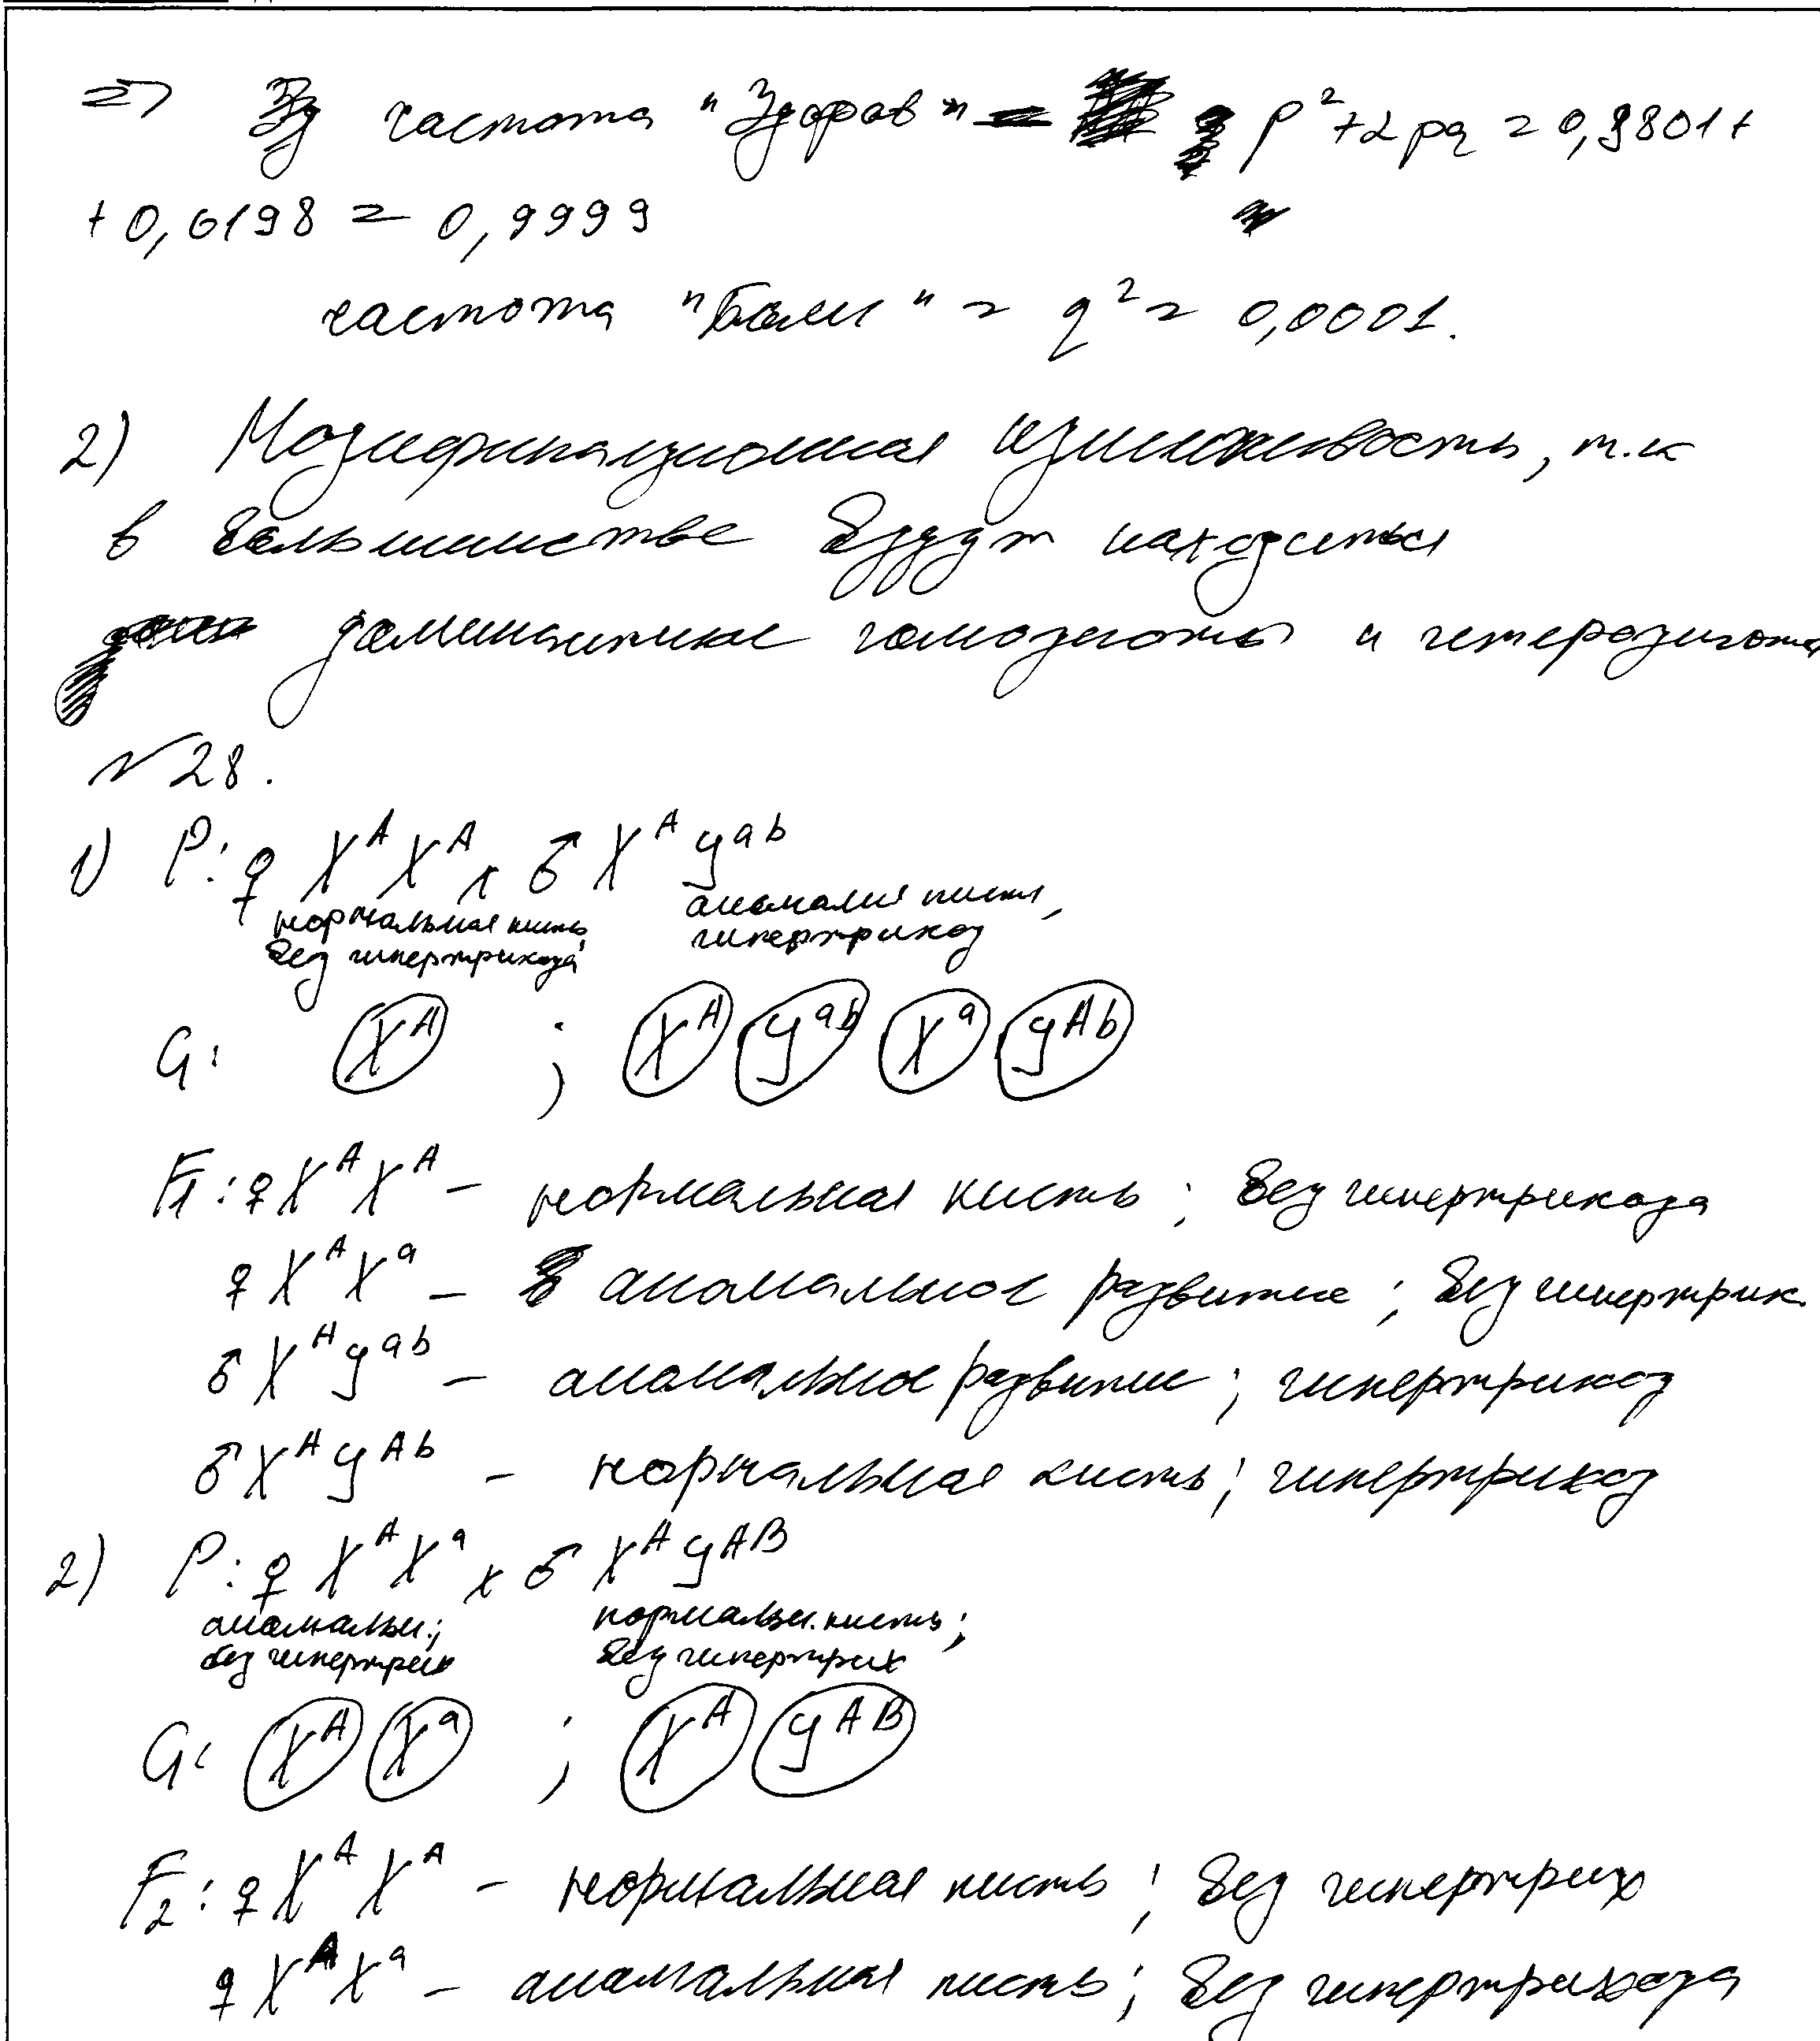 => частота "Здоров" = p² + 2pq = 0,9801 +
+ 0,0198 = 0,9999
частота "Болен" = q² = 0,0001.
2) Модификационная изменчивость, т.к
в большинстве будут находиться
доминантные гомозиготы и гетерозиготы
№28.
1) P: ♀ XᴬXᴬ x ♂ XᴬYᵃᵇ
нормальная кисть, аномалия кисти,
без гипертрихоза гипертрихоз
G: Xᴬ ; Xᴬ Yᵃᵇ Xᵃ Yᴬᵇ
F₁: ♀ XᴬXᴬ – нормальная кисть; без гипертрихоза
♀ XᴬXᵃ – аномальное развитие; без гипертрих.
♂ XᴬYᵃᵇ – аномальное развитие; гипертрихоз
♂ XᴬYᴬᵇ – нормальная кисть; гипертрихоз
2) P: ♀ XᴬXᵃ x ♂ XᴬYᴬᴮ
аномальн.; нормальн. кисть;
без гипертрих без гипертрих
G: Xᴬ Xᵃ ; Xᴬ Yᴬᴮ
F₂: ♀ XᴬXᴬ – нормальная кисть; без гипертрих
♀ XᴬXᵃ – аномальная кисть; без гипертрихоза